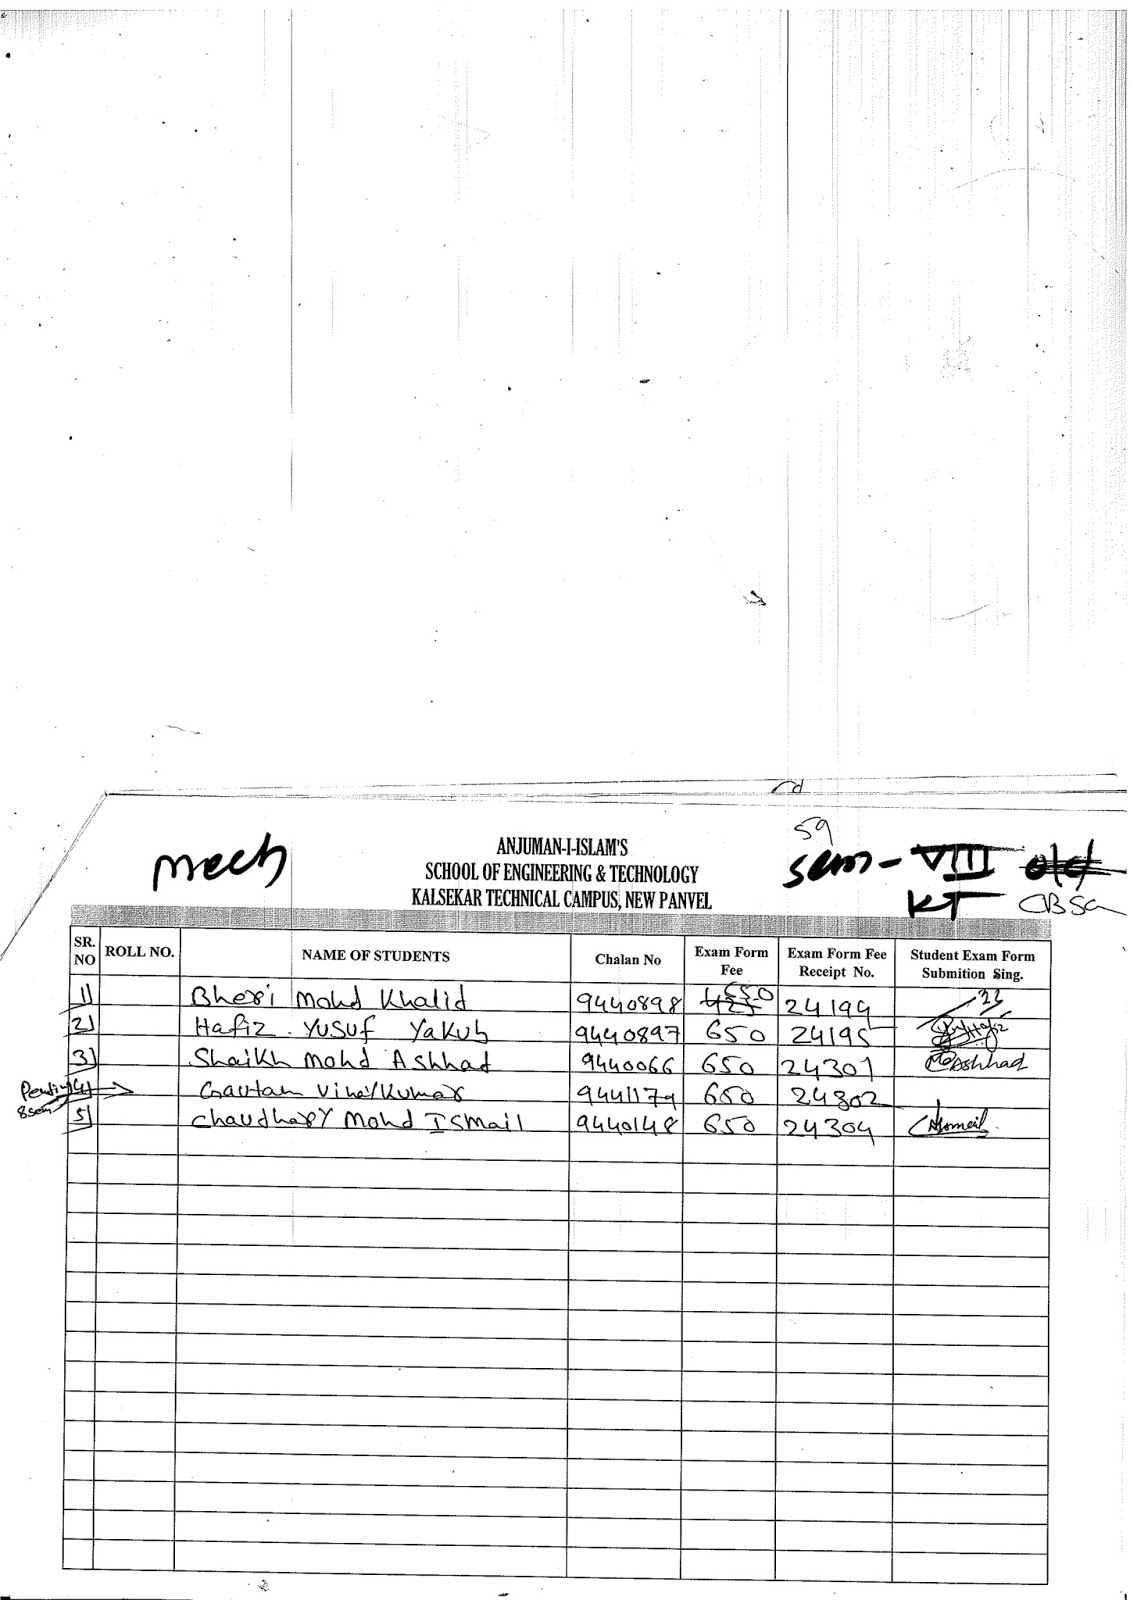 59
mech
ANJUMAN-I-ISLAM'S
SCHOOL OF ENGINEERING & TECHNOLOGY
KALSEKAR TECHNICAL CAMPUS, NEW PANVEL
sem - VIII old
KT CBSG
SR. NO ROLL NO. NAME OF STUDENTS Chalan No Exam Form Fee Exam Form Fee Receipt No. Student Exam Form Submition Sing.
1) Bheri Mohd Khalid 9440898 425 650 24194
2) Hafiz Yusuf Yakub 9440897 650 24195 Hafiz
3) Shaikh Mohd Ashhad 9440066 650 24301 Ashhad
Pending 8sem 4) Gautam Vinaykumar 9441179 650 24302
5) Chaudhary Mohd Ismail 9440148 650 24304